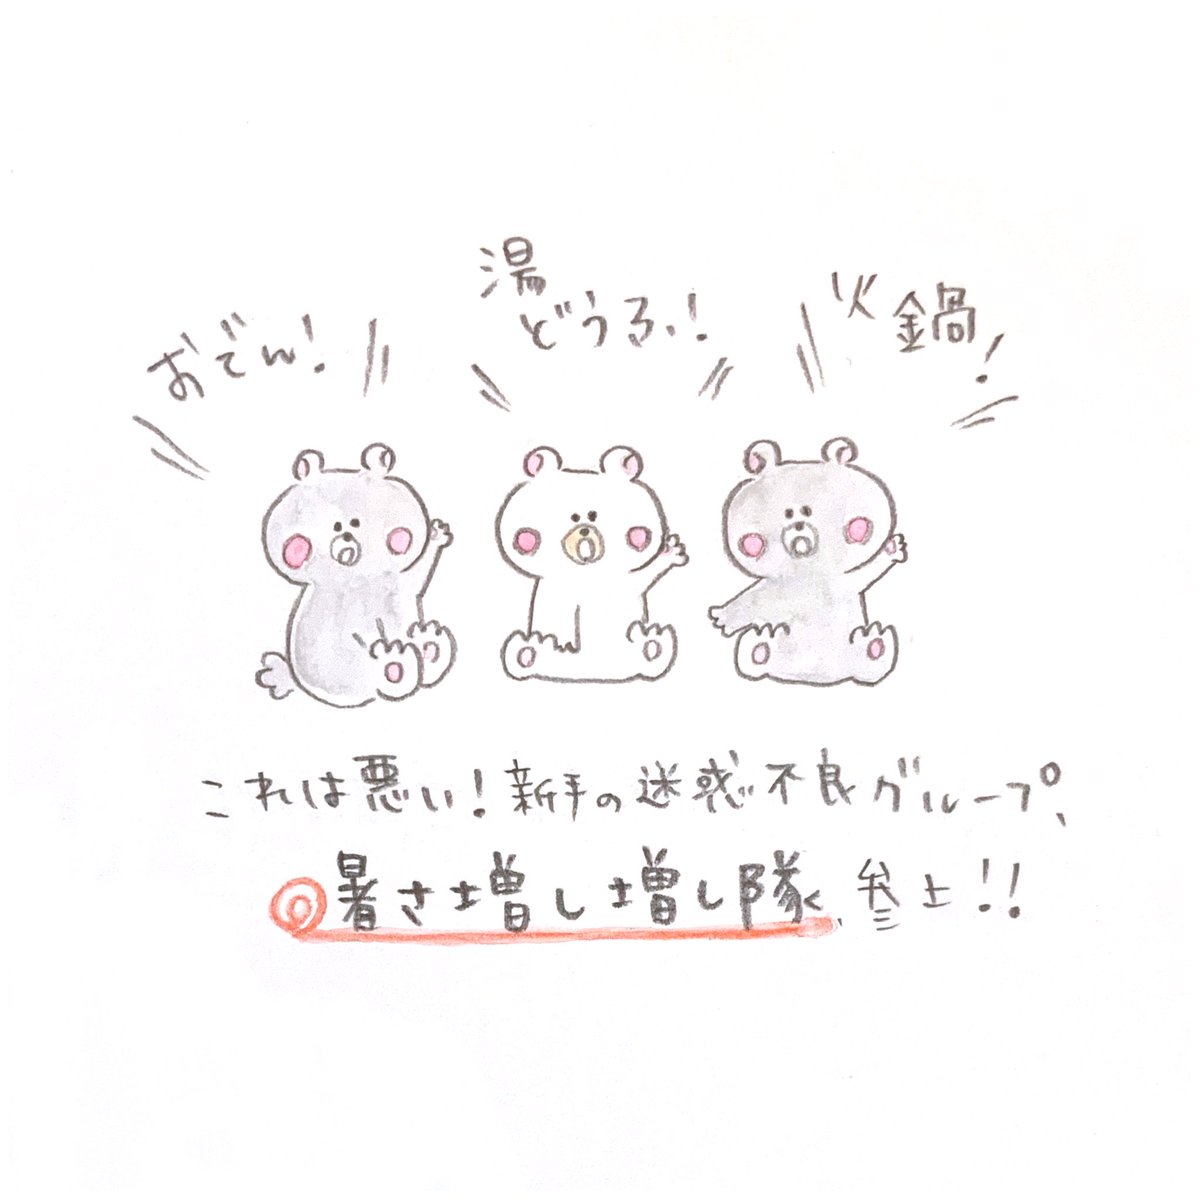 おでん!
湯
どうふ!
火鍋!
これは悪い!新手の迷惑不良グループ、
暑さ増し増し隊、参上!!